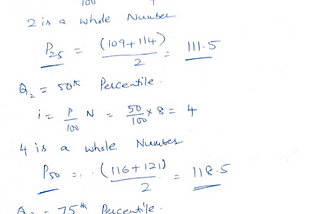 100
2 is a whole Number
P₂₅ = (109+114) / 2 = 111.5
Q₂ = 50th Percentile.
i = P/100 N = 50/100 × 8 = 4
4 is a whole Number
P₅₀ = (116+121) / 2 = 118.5
75th Percentile.